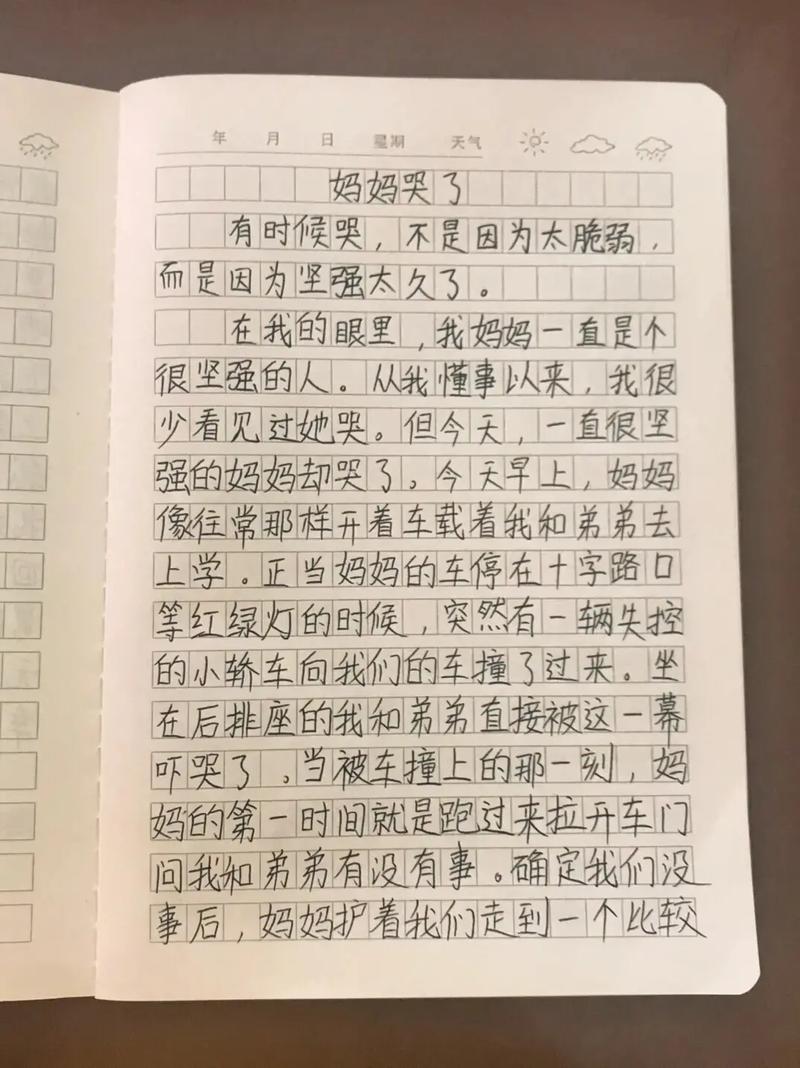 年 月 日 星期 天气
妈妈哭了
有时候哭，不是因为太脆弱，
而是因为坚强太久了。
在我的眼里，我妈妈一直是个
很坚强的人。从我懂事以来，我很
少看见过她哭。但今天，一直很坚
强的妈妈却哭了。今天早上，妈妈
像往常那样开着车载着我和弟弟去
上学。正当妈妈的车停在十字路口
等红绿灯的时候，突然有一辆失控
的小轿车向我们的车撞了过来。坐
在后排座的我和弟弟直接被这一幕
吓哭了。当被车撞上的那一刻，妈
妈的第一时间就是跑过来拉开车门
问我和弟弟有没有事。确定我们没
事后，妈妈护着我们走到一个比较